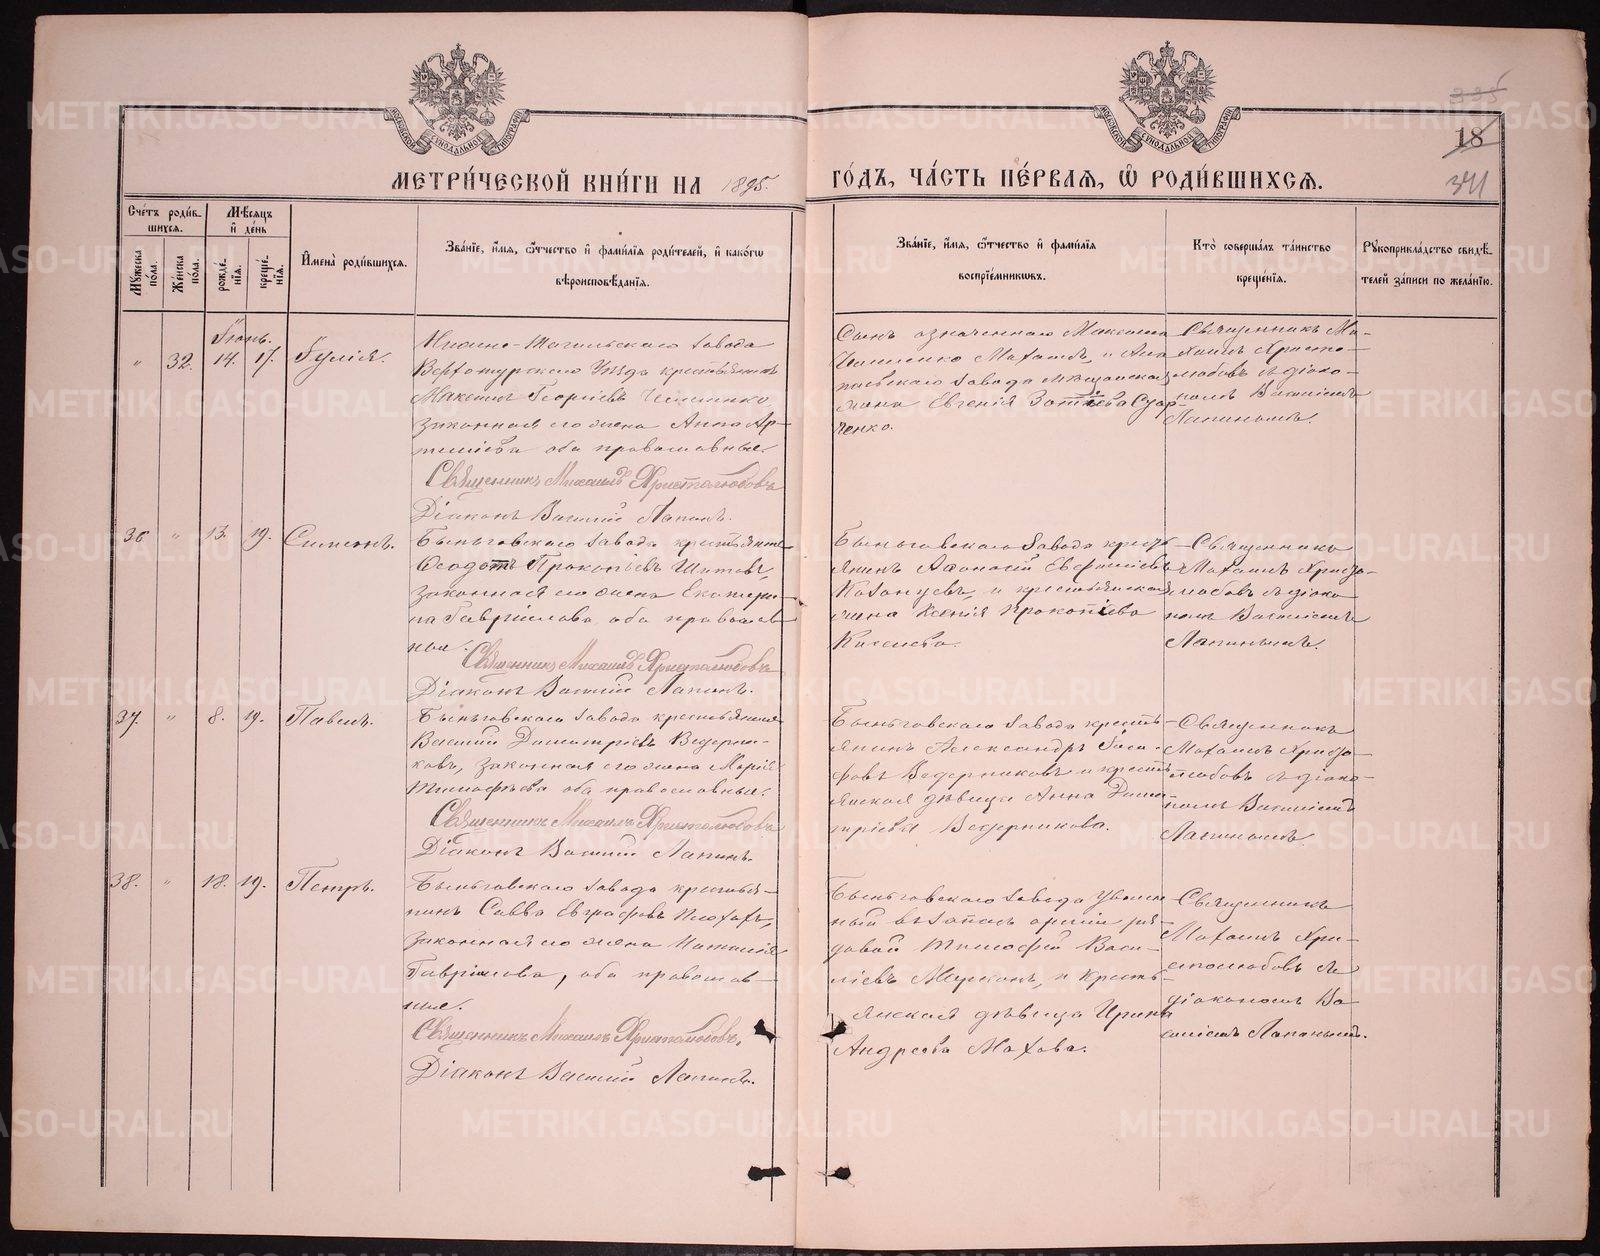 МОСКОВСКОЙ СѴНОДАЛЬНОЙ ТИПОГРАФІИ
МОСКОВСКОЙ СѴНОДАЛЬНОЙ ТИПОГРАФІИ
335
18
341
МЕТРИ́ЧЕСКОЙ КНИ́ГИ НА 1895. ГО́ДЪ, ЧА́СТЬ ПЕ́РВАЯ, Ѽ РОДИ́ВШИХСЯ.
Сче́тъ роди́в-
шихся.
Мѣ́сяцъ
и҆ де́нь
Мꙋ́жеска по́ла.
Же́нска по́ла.
рожде́нїя.
креще́нїя.
И҆мена̀ роди́вшихся.
Зва́нїе, и҆́мѧ, ѻ҆́тчество и҆ фами́лїя роди́телей, и҆ како́гѡ
вѣроисповѣ́данїя.
Зва́нїе, и҆́мѧ, ѻ҆́тчество и҆ фами́лїя
воспрїе́мникѡвъ.
Кто̀ соверша́лъ та́инство
креще́нїя.
Рꙋкоприкла́дство свидѣ́-
телей за́писи по жела́нїю.
Іюнь.
" 32. 14. 17. Іулія.
Нижно-Тагильскаго завода
Верхотурскаго Уѣзда крестьянинъ
Максимъ Георгіевъ
законная его жена Анна Ар-
теміева оба православные.
Священникъ Михаилъ Христолюбовъ
Діаконъ Василій Лапинъ.
Сынъ означеннаго Максима
Михаилъ, и Ала
паевскаго завода мѣщанская
жена Евгенія
ченко.
Священникъ Ми-
хаилъ Христо-
любовъ съ діако-
номъ Василіемъ
Лапинымъ.
36 " 13. 19. Симеонъ.
Быньговскаго завода крестьянинъ
Ѳеодотъ Прокопіевъ Шитовъ,
законная его жена Екатери-
на Гавріилова оба православ
ные.
Священникъ Михаилъ Христолюбовъ
Діаконъ Василій Лапинъ.
Быньговскаго завода кресть-
янинъ Афонасій Евфиміевъ
Казанцевъ, и крестьянская
жена Ксенія Прокопіева
Киселева.
Священникъ
Михаилъ Христо-
любовъ съ діако
номъ Василіемъ
Лапинымъ.
37. " 8. 19. Павелъ.
Быньговскаго завода крестьянинъ
Василій Димитріевъ Ведерни-
ковъ, законная его жена Марія
Тимофѣева оба православные.
Священникъ Михаилъ Христолюбовъ
Діаконъ Василій Лапинъ.
Быньговскаго завода кресть-
янинъ Александръ Іоси-
фовъ Ведерниковъ и кресть
янская дѣвица Анна Дими-
тріева Ведерникова.
Священникъ
Михаилъ Христо-
любовъ съ діако-
номъ Василіемъ
Лапинымъ.
38. " 18. 19. Петръ.
Быньговскаго завода крестья-
нинъ Савва Евграфовъ Плохихъ,
законная его жена Наталія
Гавріилова, оба православ-
ные.
Священникъ Михаилъ Христолюбовъ,
Діаконъ Василій Лапинъ.
Быньговскаго завода уволен
ный въ запасъ арміи ря-
довой Тимофей Васи-
ліевъ и кресть-
янская дѣвица Ирина
Андреева Махова.
Священникъ
Михаилъ Хри-
столюбовъ съ
діакономъ Ва
силіемъ Лапинымъ.
METRIKI.GASO-URAL.RU